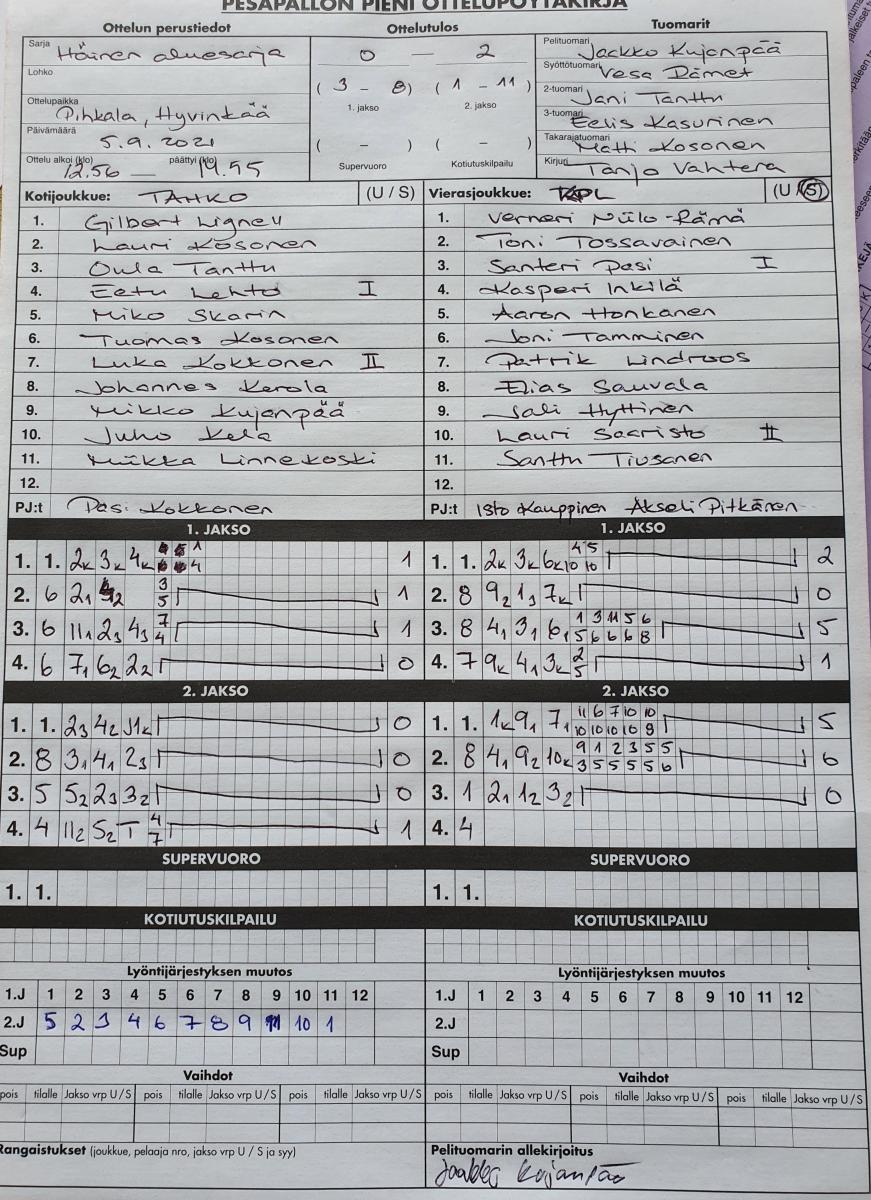 PESÄPALLON PIENI OTTELUPÖYTÄKIRJA
Ottelun perustiedot Ottelutulos Tuomarit
Sarja Hämeen aluesarja 0 — 2 Pelituomari Jaakko Kujanpää
Lohko Syöttötuomari Vesa Rämet
( 3 - 8 ) ( 1 - 11 ) 2-tuomari Jani Tanttu
Ottelupaikka Pihkala, Hyvinkää 1. jakso 2. jakso 3-tuomari Eelis Kasurinen
Päivämäärä 5.9.2021 ( - ) ( - ) Takarajatuomari Matti Kosonen
Ottelu alkoi (klo) 12.56 — päättyi (klo) 14.55 Supervuoro Kotiutuskilpailu Kirjuri Tanja Vahtera
Kotijoukkue: TAHKO (U / S) Vierasjoukkue: KPL (U / S)
1. Gilbert Ligneu 1. Verneri Niilo-Rämä
2. Lauri Kosonen 2. Toni Tossavainen
3. Oula Tanttu 3. Santeri Pasi I
4. Eetu Lehto I 4. Kasperi Inkilä
5. Miko Skarin 5. Aaron Honkanen
6. Tuomas Kosonen 6. Joni Tamminen
7. Luka Kokkonen II 7. Patrik Lindroos
8. Johannes Kerola 8. Elias Sauvala
9. Mikko Kujanpää 9. Sali Hyttinen
10. Juho Kela 10. Lauri Saaristo II
11. Miikka Linnekoski 11. Santtu Tiusanen
12. 12.
PJ:t Pasi Kokkonen PJ:t Isto Kauppinen Akseli Pitkänen
1. JAKSO 1. JAKSO
1. 1. 2K 3K 4K 1 4 1 1. 1. 2K 3K 6K 4 5 10 10 2
2. 6 21 2 3 5 1 2. 8 9 2 1 3 7K 0
3. 6 11 1 2 3 4 3 7 4 1 3. 8 4 1 3 1 6 1 1 3 11 5 6 5 6 6 6 8 5
4. 6 7 1 6 2 2 2 0 4. 7 9K 4 1 3K 2 5 1
2. JAKSO 2. JAKSO
1. 1. 2 3 4 2 11K 0 1. 1. 1K 9 1 7 1 11 6 7 10 10 10 10 10 10 9 5
2. 8 3 1 4 1 2 3 0 2. 8 4 1 9 2 10K 9 1 2 3 5 5 3 5 5 5 5 6 6
3. 5 5 2 2 3 3 2 0 3. 1 2 1 1 2 3 2 0
4. 4 11 2 5 2 T 4 7 1 4. 4
SUPERVUORO SUPERVUORO
1. 1. 1. 1.
KOTIUTUSKILPAILU KOTIUTUSKILPAILU
Lyöntijärjestyksen muutos Lyöntijärjestyksen muutos
1.J 1 2 3 4 5 6 7 8 9 10 11 12 1.J 1 2 3 4 5 6 7 8 9 10 11 12
2.J 5 2 3 4 6 7 8 9 11 10 1 2.J
Sup Sup
Vaihdot Vaihdot
pois tilalle Jakso vrp U / S pois tilalle Jakso vrp U / S pois tilalle Jakso vrp U / S pois tilalle Jakso vrp U / S pois tilalle Jakso vrp U / S
Rangaistukset (joukkue, pelaaja nro, jakso vrp U / S ja syy) Pelituomarin allekirjoitus
Jaakko Kujanpää